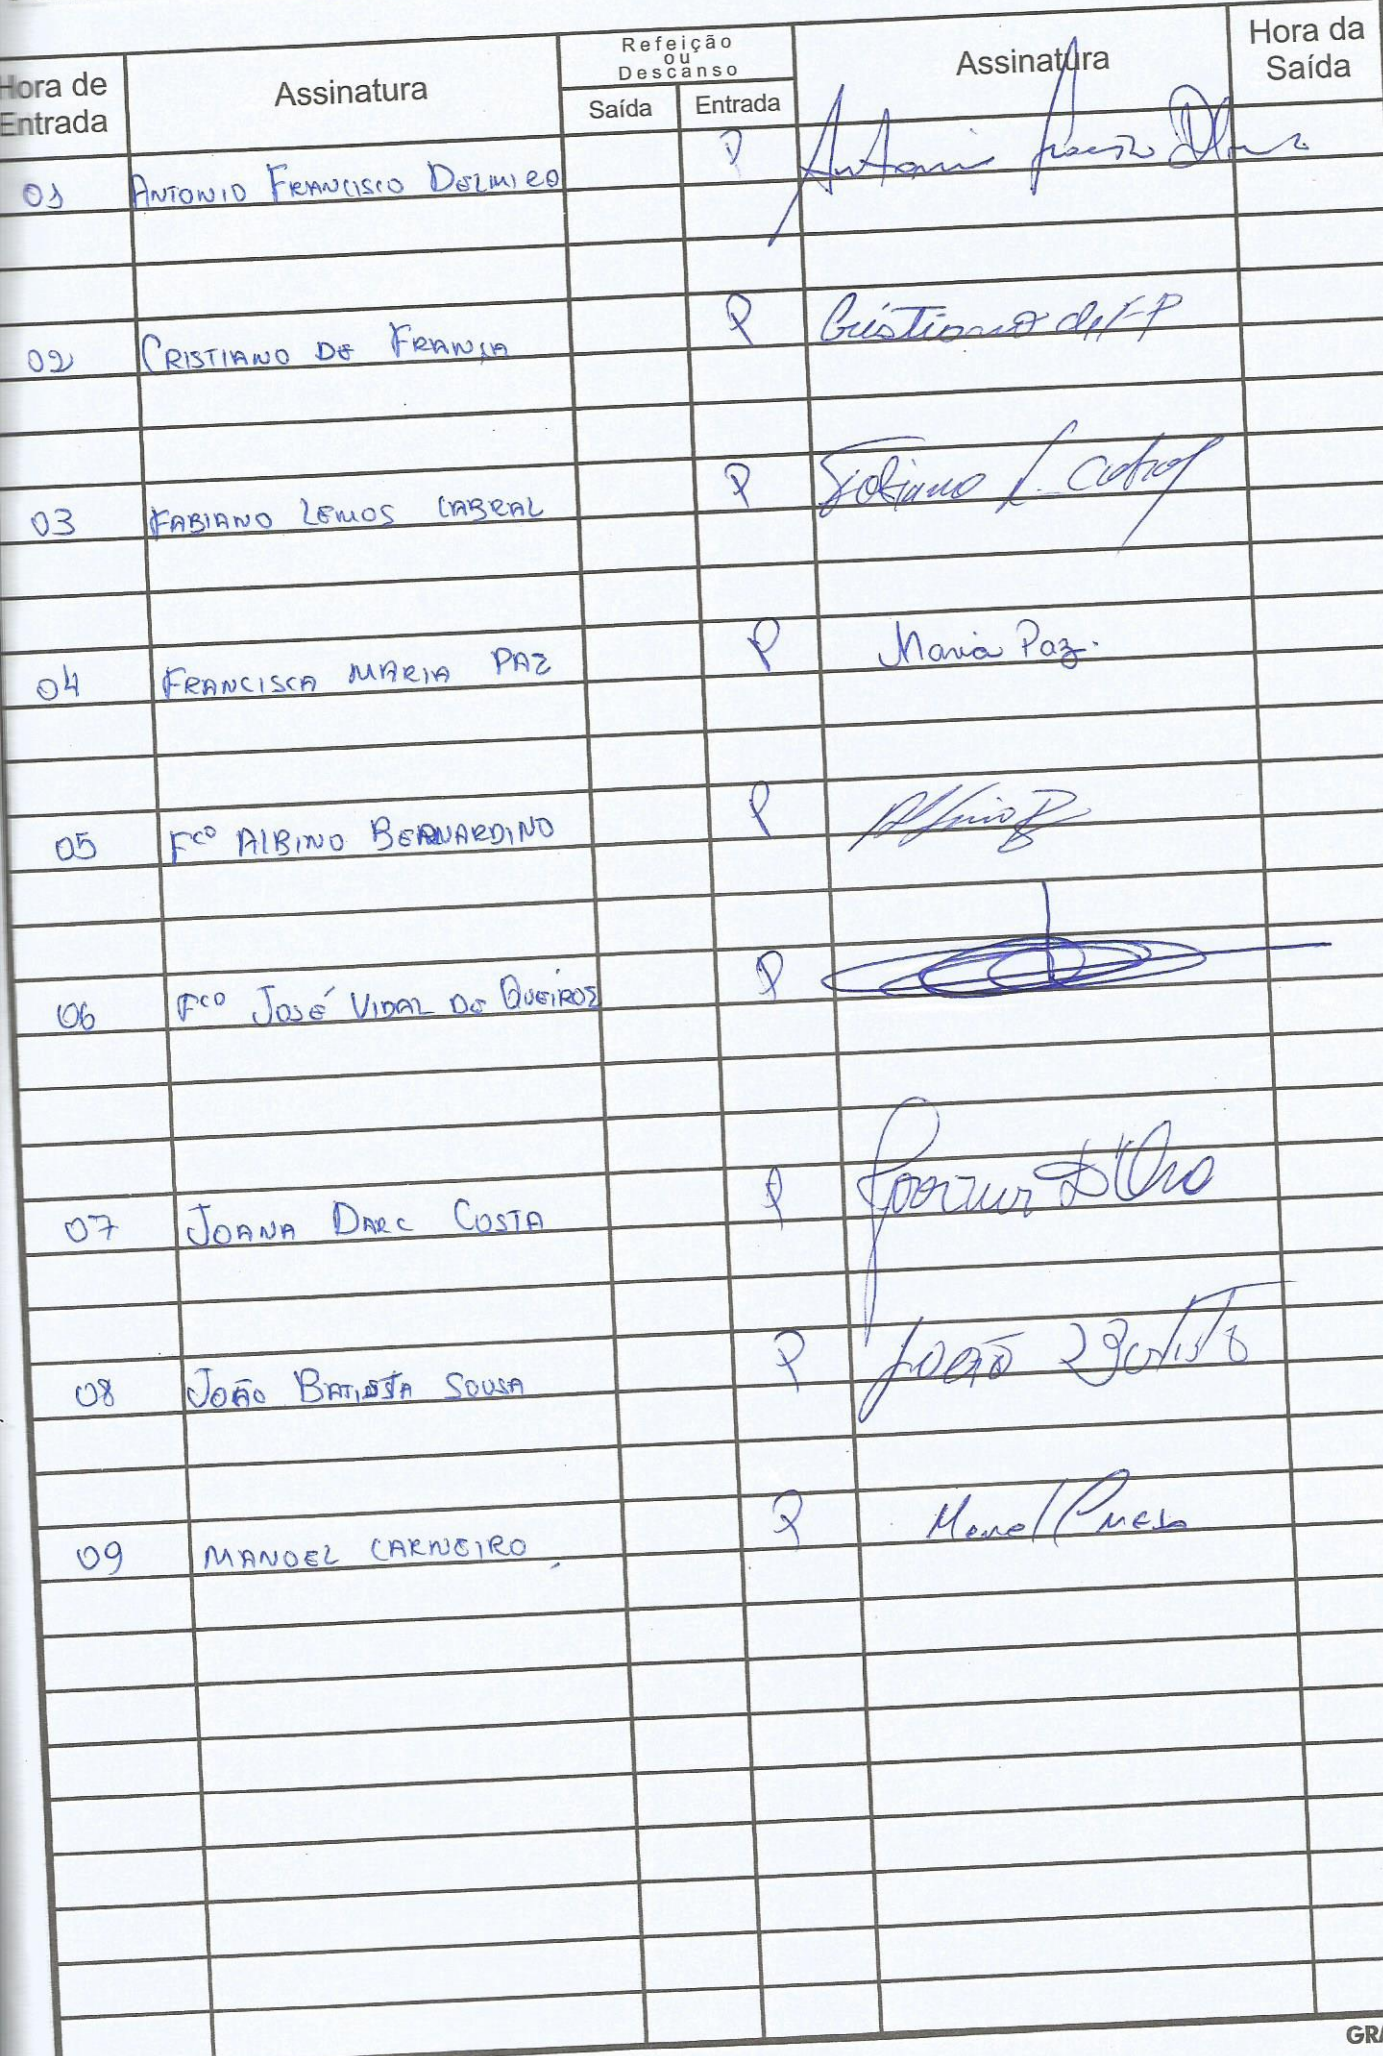 Hora de Entrada Assinatura Refeição ou Descanso Assinatura Hora da Saída
Saída Entrada
01 ANTONIO FRANCISCO DELMIRO P Antonio
02 CRISTIANO DE FRANÇA P Cristiano de F P
03 FABIANO LEMOS CABRAL P Fabiano L. Cabral
04 FRANCISCA MARIA PAZ P Maria Paz.
05 Fco ALBINO BERNARDINO P Albino B
06 Fco JOSÉ VIDAL DE QUEIROZ P
07 JOANA DARC COSTA P
08 JOÃO BATISTA SOUSA P João Batista
09 MANOEL CARNEIRO P Manoel
GRA